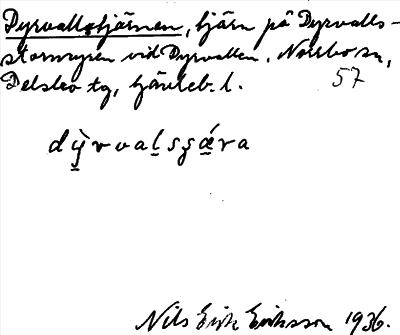 Dyrvallstjärnen, tjärn på Dyrvalls-
stormyren vid Dyrvallen. Norrbo sn,
Delsbo tg, Gävleb. l.
57
dỳrvalsʂǽra
Nils Erik Eriksson 1936.